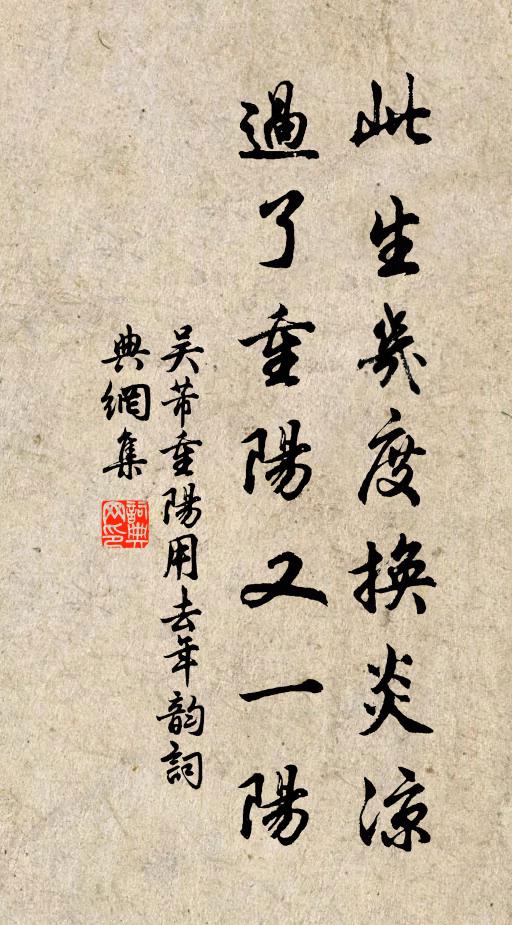 此生幾度換炎涼
過了重陽又一陽
吳芾重陽用去年韵詞
典網集
詞典網印